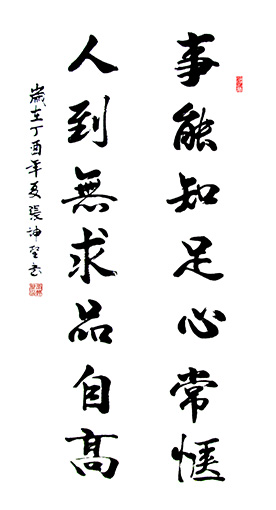 事能知足心常惬
人到無求品自高
歲在丁酉年夏張坤堅书